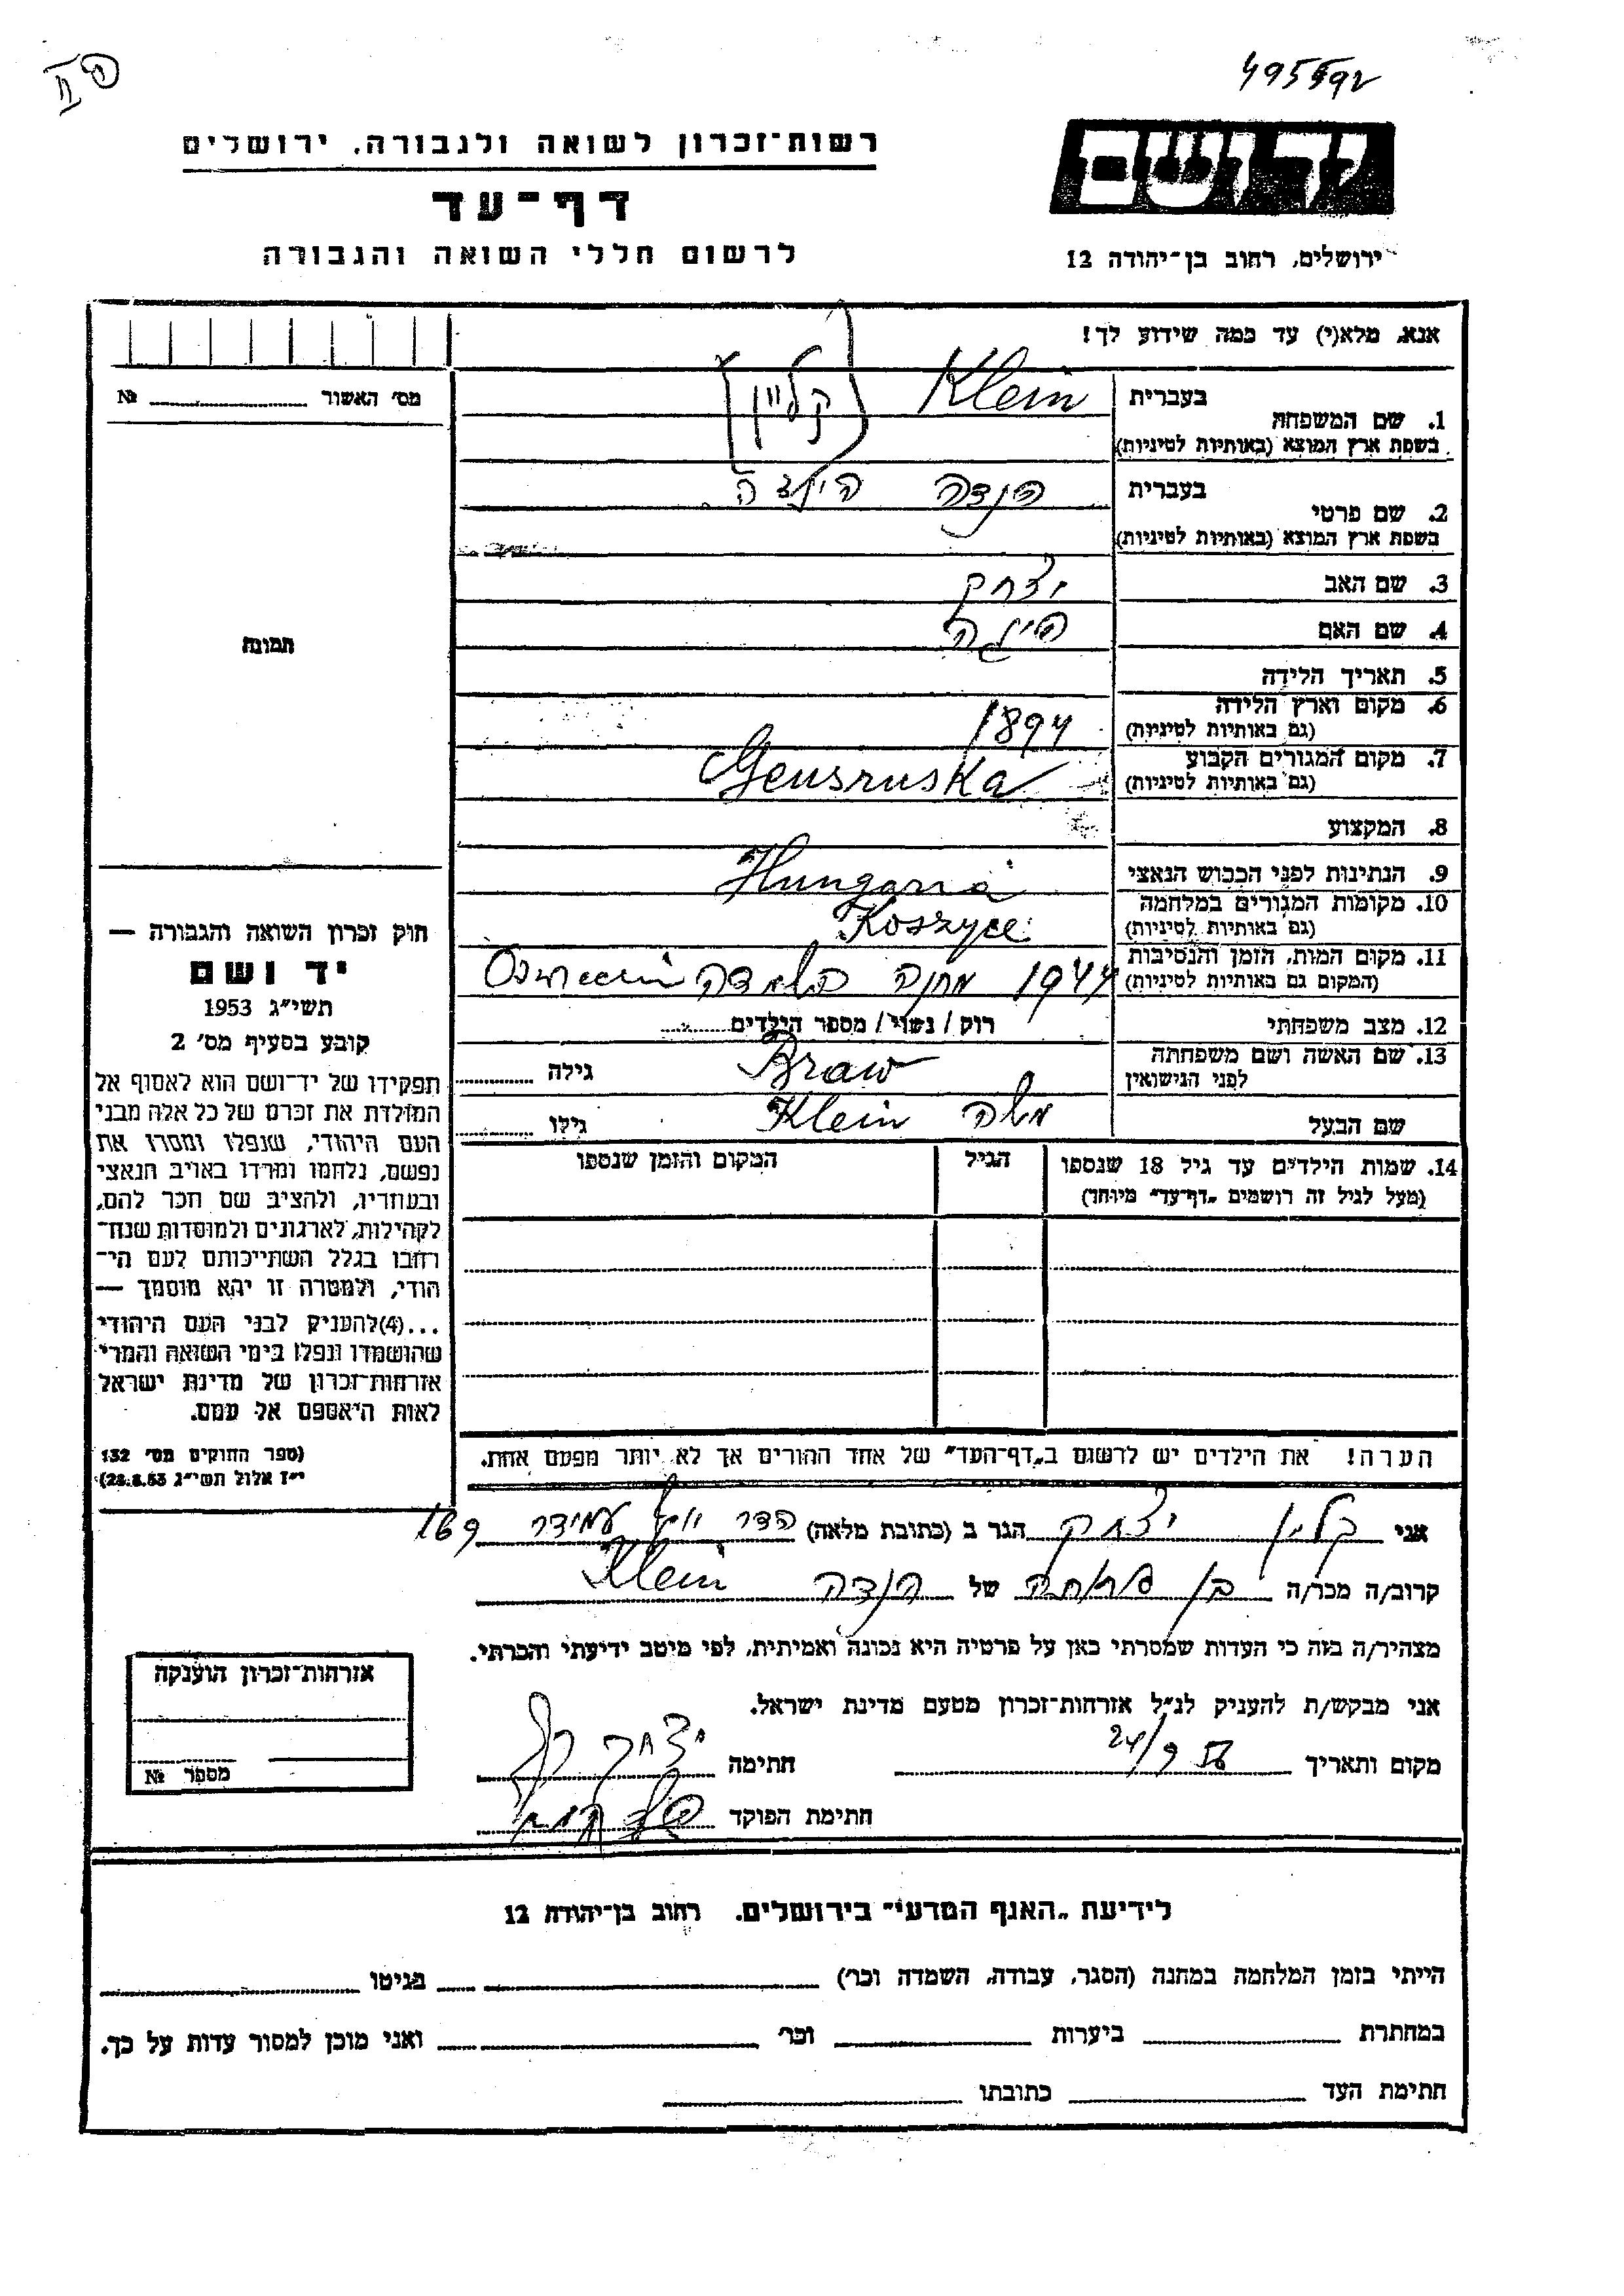 495592
רשות־זכרון לשואה ולגבורה, ירושלים
דף־עד
לרשום חללי השואה והגבורה
יד ושם
ירושלים, רחוב בן־יהודה 12
אנא, מלא(י) עד כמה שידוע לך!
מס׳ האשור № 
תמונה
1. שם המשפחה
בעברית Klein (קליין)
בשפת ארץ המוצא (באותיות לטיניות)
2. שם פרטי
בעברית הנדה
בשפת ארץ המוצא (באותיות לטיניות)
3. שם האב יצחק
4. שם האם
5. תאריך הלידה
6. מקום וארץ הלידה 1894
(גם באותיות לטיניות)
7. מקום המגורים הקבוע Gensruska
(גם באותיות לטיניות)
8. המקצוע
9. הנתינות לפני הכבוש הנאצי Hungaria
10. מקומות המגורים במלחמה Koszyce
(גם באותיות לטיניות)
11. מקום המות, הזמן והנסיבות 1944 מחנה השמדה
(המקום גם באותיות לטיניות)
12. מצב משפחתי רוק / נשוי / מספר הילדים
13. שם האשה ושם משפחתה Braw גילה
לפני הנישואין
שם הבעל משה Klein גילו
14. שמות הילדים עד גיל 18 שנספו הגיל המקום והזמן שנספו
(מעל לגיל זה רושמים „דף־עד״ מיוחד)
הערה! את הילדים יש לרשום ב„דף־העד״ של אחד ההורים אך לא יותר מפעם אחת.
חוק זכרון השואה והגבורה —
יד ושם
תשי״ג 1953
קובע בסעיף מס׳ 2
תפקידו של יד־ושם הוא לאסוף אל
המולדת את זכרם של כל אלה מבני
העם היהודי, שנפלו ומסרו את
נפשם, נלחמו ומרדו באויב הנאצי
ובעוזריו, ולהציב שם וזכר להם,
לקהילות, לארגונים ולמוסדות שנח־
רבו בגלל השתייכותם לעם הי־
הודי, ולמטרה זו יהא מוסמך —
...(4) להעניק לבני העם היהודי
שהושמדו ונפלו בימי השואה והמרי
אזרחות־זכרון של מדינת ישראל
לאות היאספם אל עמם.
(ספר החוקים מס׳ 132
י״ז אלול תשי״ג 28.8.53)
אני קליין יצחק הגר ב (כתובת מלאה) הדר יוסף עמידר 169
קרוב/ה מכר/ה בן של הנדה Klein
מצהיר/ה בזה כי העדות שמסרתי כאן על פרטיה היא נכונה ואמיתית, לפי מיטב ידיעתי והכרתי.
אני מבקש/ת להעניק לנ״ל אזרחות־זכרון מטעם מדינת ישראל.
מקום ותאריך 24/9 56 חתימה יצחק
חתימת הפוקד
אזרחות־זכרון הוענקה
מספר №
לידיעת „האגף המדעי״ בירושלים, רחוב בן־יהודה 12
הייתי בזמן המלחמה במחנה (הסגר, עבודה, השמדה וכר׳) בגיטו
במחתרת ביערות וכר׳ ואני מוכן למסור עדות על כך.
חתימת העד כתובתו